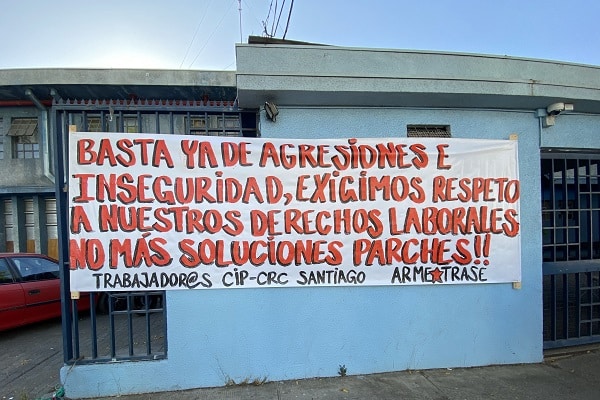 BASTA YA DE AGRESIONES E
INSEGURIDAD, EXIGIMOS RESPETO
A NUESTROS DERECHOS LABORALES,
NO MÁS SOLUCIONES PARCHES!!
TRABAJADOR@S CIP-CRC SANTIAGO ARME★TRASE